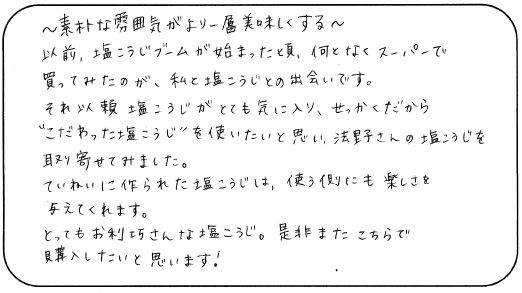 ～素朴な雰囲気がより一層美味しくする～
以前、塩こうじブームが始まった頃、何となくスーパーで
買ってみたのが、私と塩こうじとの出会いです。
それ以頼塩こうじがとても気に入り、せっかくだから
"こだわった塩こうじ"を使いたいと思い、法野さんの塩こうじを
取り寄せてみました。
ていねいに作られた塩こうじは、使う側にも楽しさを
与えてくれます。
とってもお利巧さんな塩こうじ。是非またこちらで
購入したいと思います!